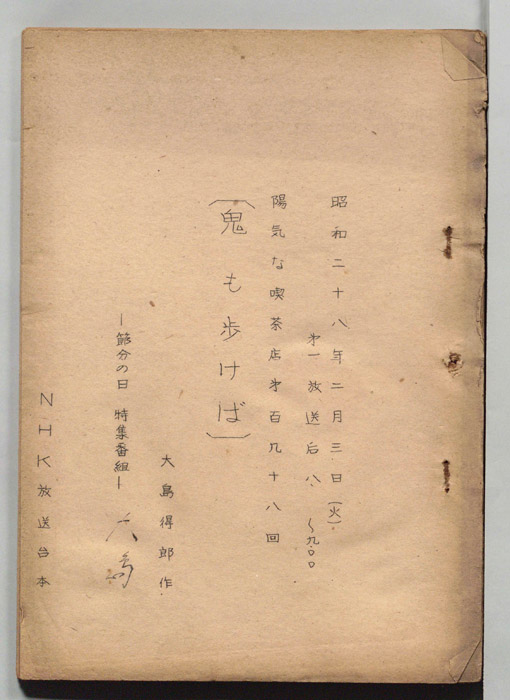 昭和二十八年二月三日（火）
第一放送后八、〜九・〇〇
陽気な喫茶店第百九十八回
（鬼も歩けば）
大島得郎作
―節分の日 特集番組―
大島
NHK放送台本